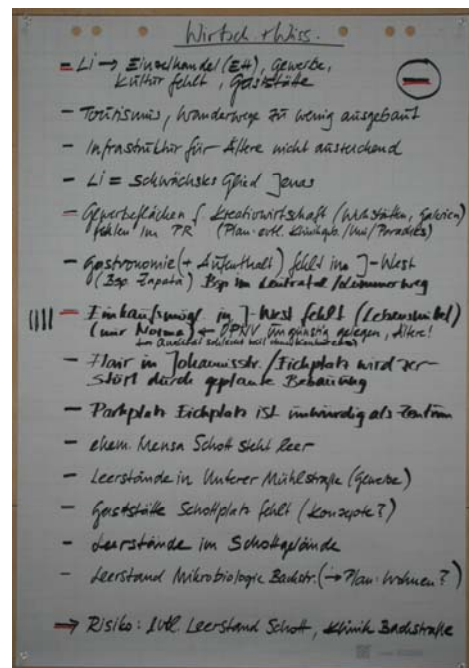 Wirtsch. + Wiss.
- Li → Einzelhandel (EH), Gewerbe,
Kultur fehlt, Gaststätte
- Tourismus, Wanderwege zu wenig ausgebaut
- Infrastruktur für Ältere nicht ausreichend
- Li = schwächstes Glied Jenas
- Gewerbeflächen f. Kreativwirtschaft (Werkstätten, Galerien)
fehlen im PR (Plan: evtl. /Uni/Paradies)
- Gastronomie (+ Aufenthalt) fehlt in J-West
(Bsp. Zapata) Bsp im Zentrum
- Einkaufsmögl. in J-West fehlt (Lebensmittel)
(nur Norma) ← ÖPNV ungünstig gelegen, Ältere!
- Flair in Johannisstr./Eichplatz wird zer-
stört durch geplante Bebauung
- Parkplatz Eichplatz ist unwürdig als Zentrum
- ehem. Mensa Schott steht leer
- Leerstände in Unterer Mühlstraße (Gewerbe)
- Gaststätte Schottplatz fehlt (Konzepte?)
- Leerstände im Schottgelände
- Leerstand Mikrobiologie Bachstr. (→ Plan: Wohnen?)
→ Risiko: Evtl. Leerstand Schott, Klinik Bachstraße